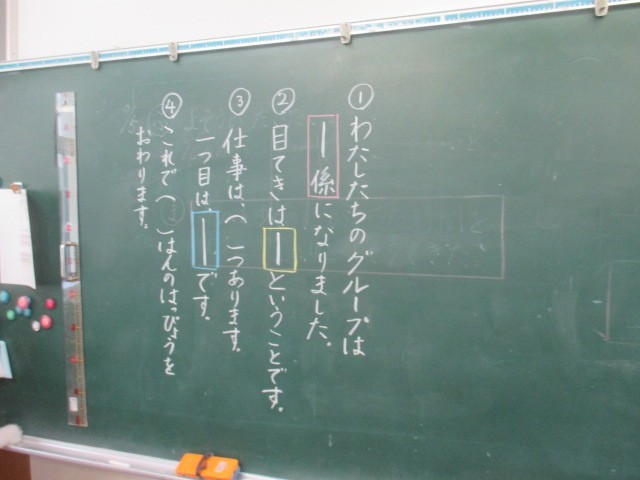 ①わたしたちのグループは
｜係になりました。
②目てきは｜ということです。
③仕事は、( )つあります。
一つ目は、｜です。
④これで( )はんのはっぴょうを
おわります。